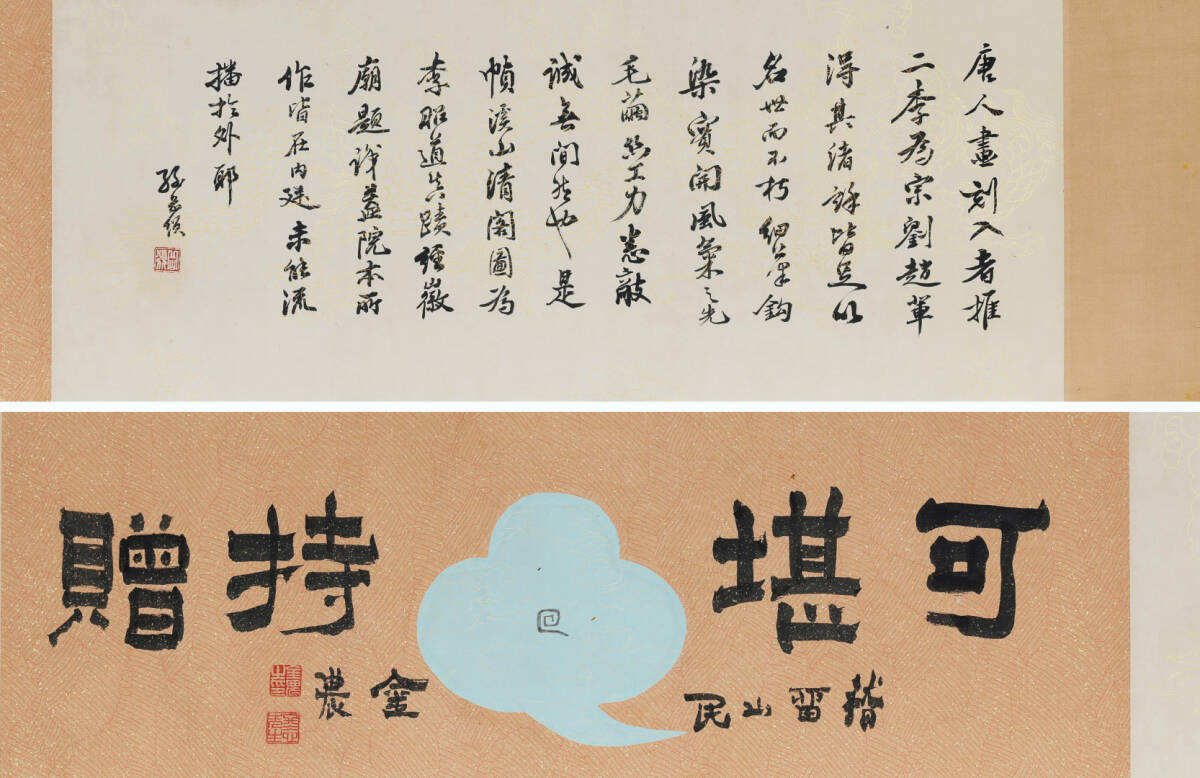 唐人畫刻入者推
二李為宗劉趙輩
得其緒餘皆足以
名世而不朽細筆鈎
染實開風氣之先
毛繭絲工力悉敵
誠無間然也是
幀溪山清閣圖為
李昭道真蹟經徽
廟題識蓋院本所
作皆在內廷未能流
播於外耶
孫家鼐
可堪持贈
稽留山民
金農